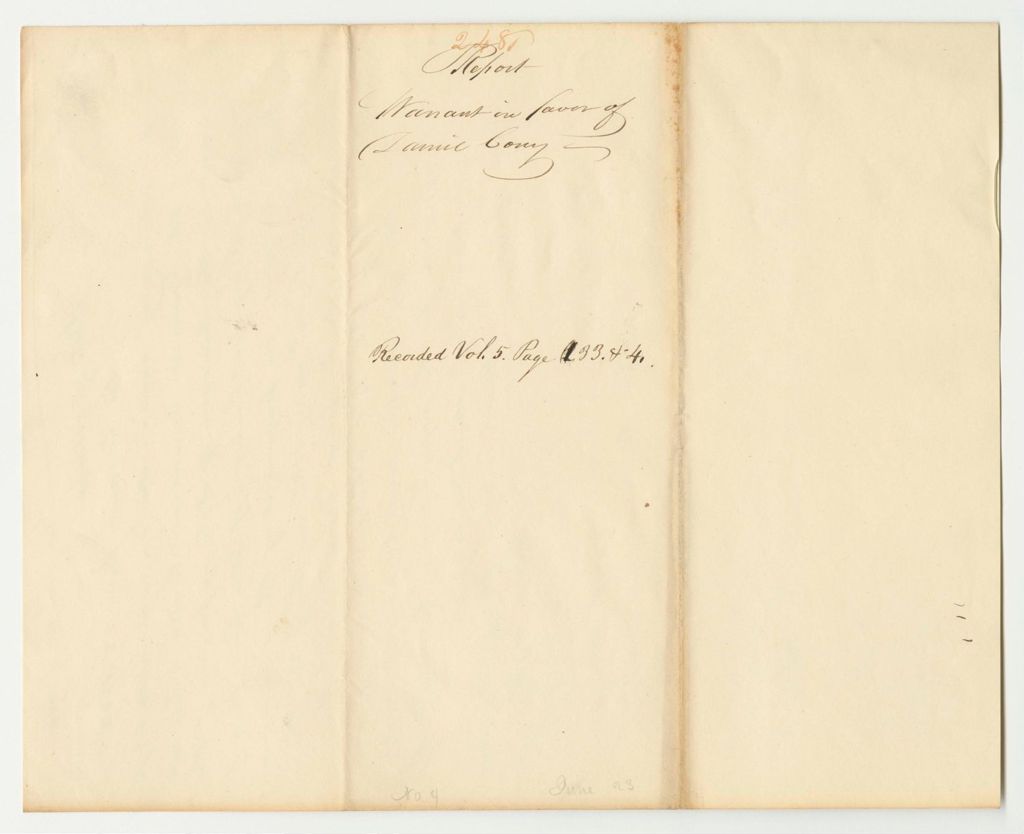 248
Report
Warrant in favor of
Daniel Cony
Recorded Vol. 5. Page 133. & 4.
No 4 June 23